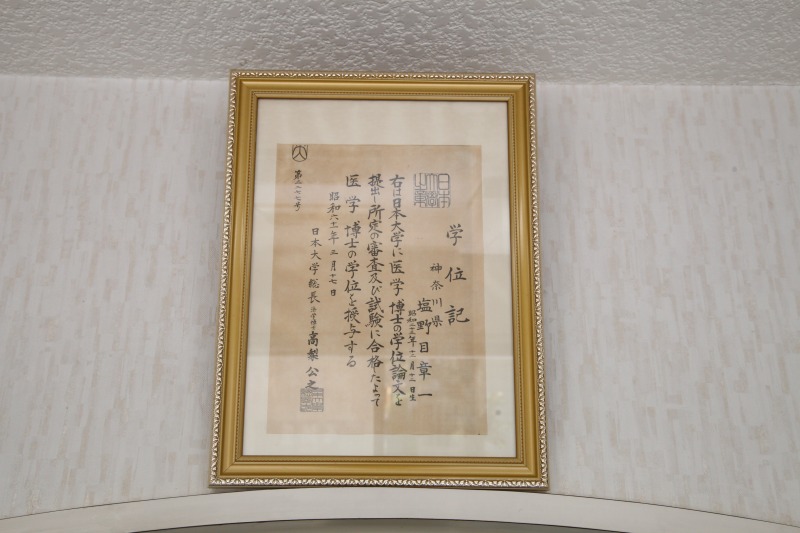 学位記
神奈川県
塩野目章一
昭和二十三年十二月十二日生
右は日本大学に医学博士の学位論文を
提出し所定の審査及び試験に合格したよって
医学博士の学位を授与する
昭和六十一年二月十七日
日本大学総長 法学博士 高梨公之